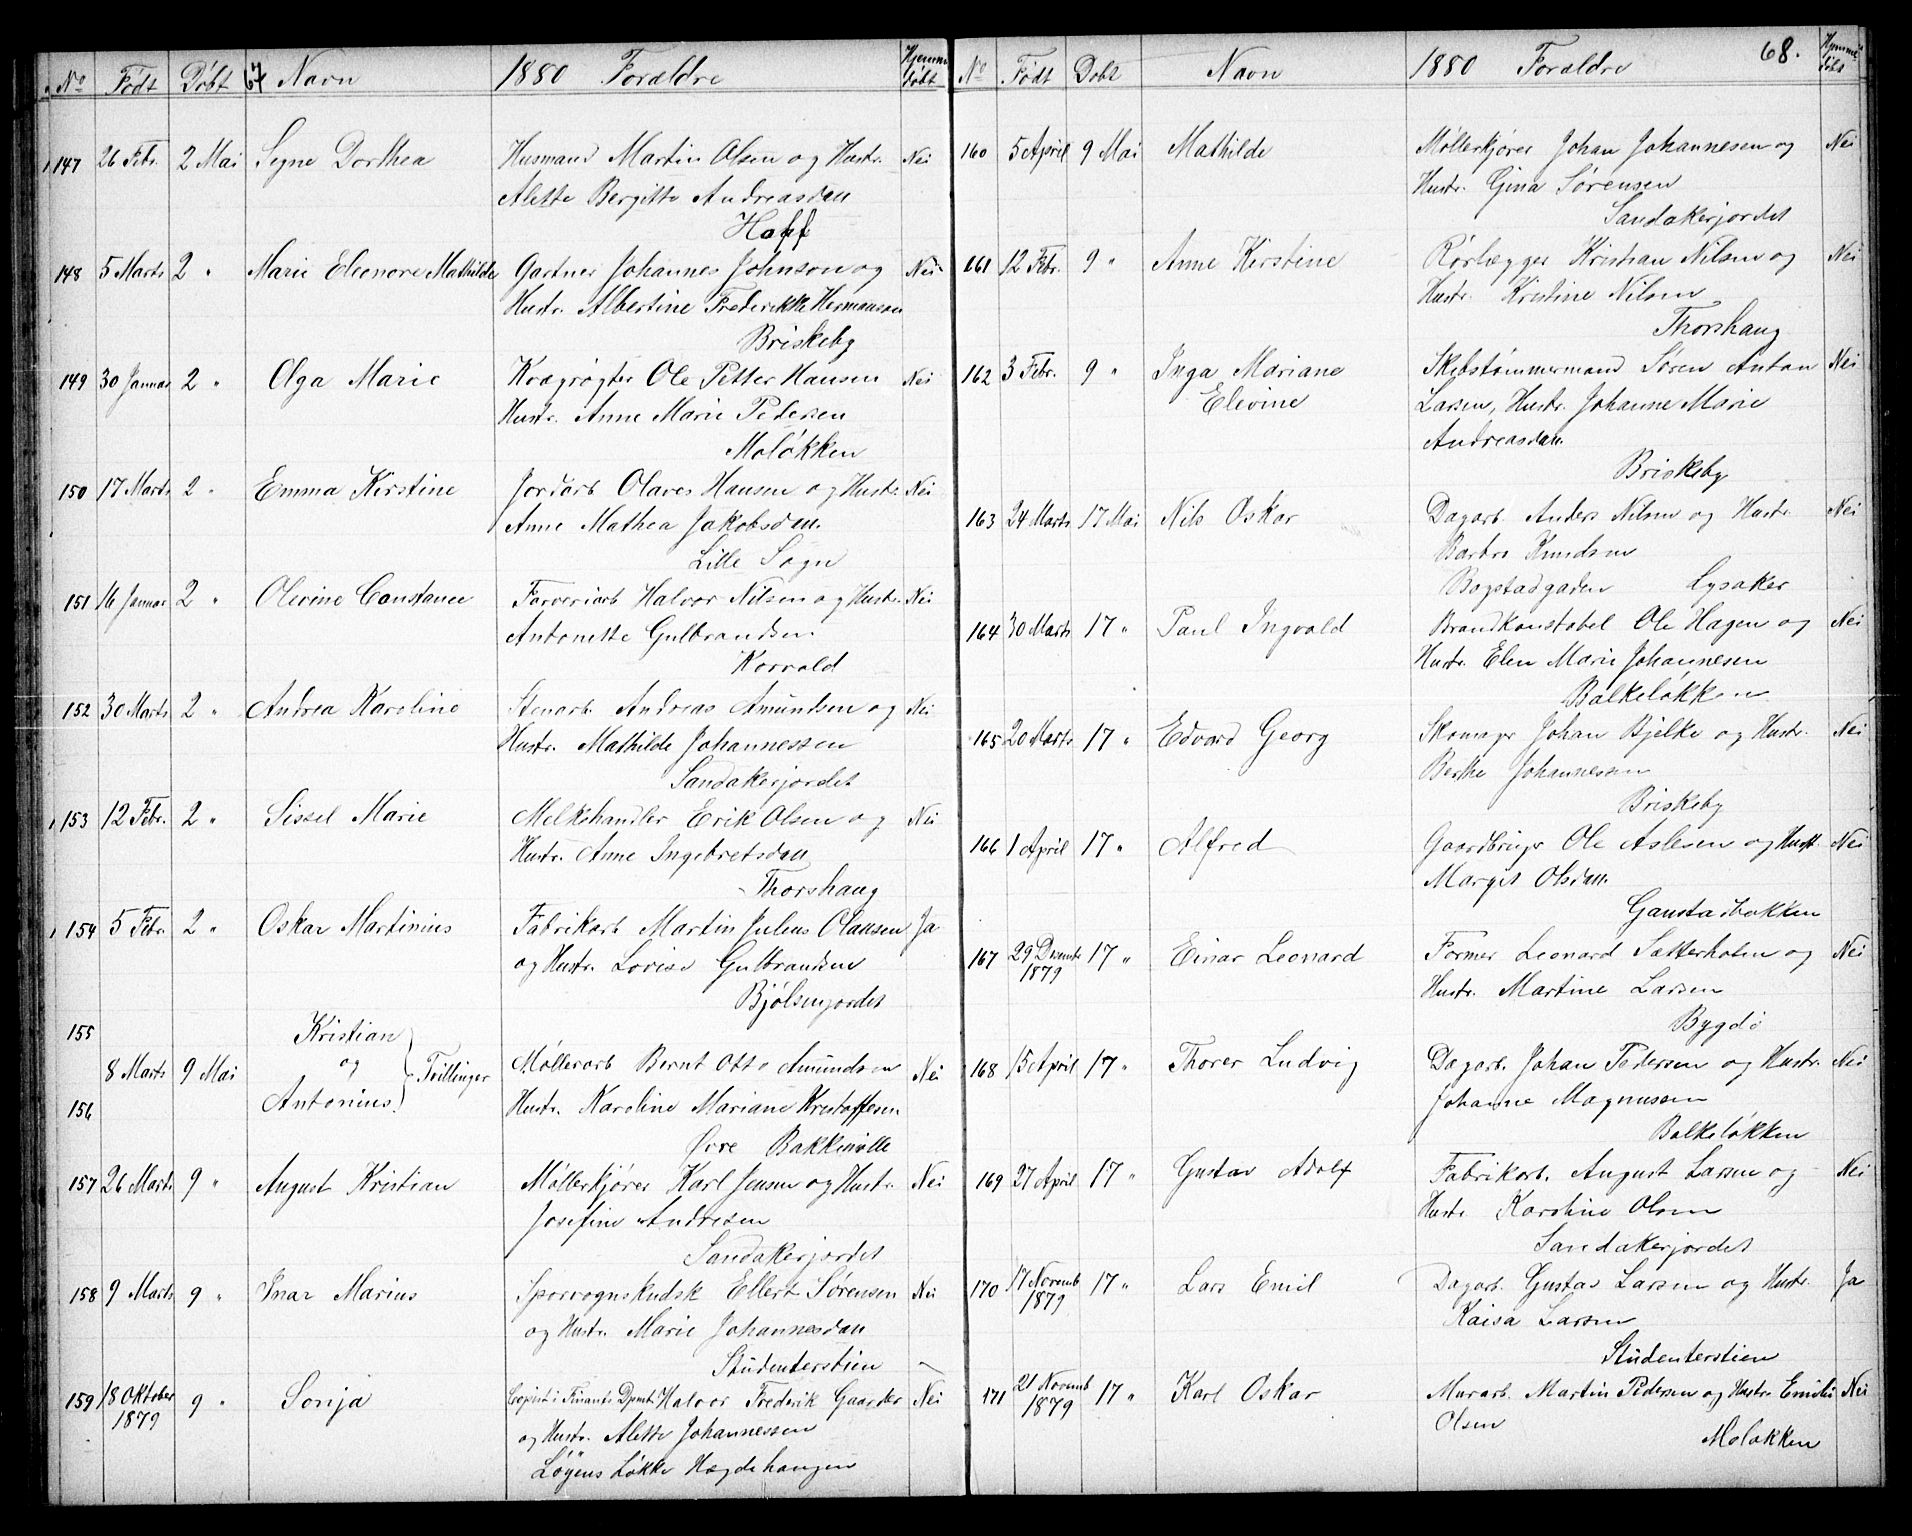 No Født Døbt 67 Navn 1880 Forældre Hjemmedøbt
147 26 Febr. 2 Mai Signe Dorthea Husmand Martin Olsen og Hustr. Nei
Alette Bergitte Andreasdau
Hoff
148 5 Marts 2 " Marie Eleonore Mathilde Gartner Johannes Johnson og Nei
Hustr. Albertine Frederikke Hermansen
Briskeby
149 30 Januar 2 " Olga Marie Krægrøgter Ole Petter Hansen Nei
Hustr. Anne Marie Pedersen
Moløkken
150 17 Marts 2 " Emma Kirstine Jordarb. Olaves Hansen og Hustr. Nei
Anne Mathea Jakobsdau.
Lille Sogn
151 16 Januar 2 " Olivine Constance Farveriarb Halvor Nilsen og Hustr. Nei
Antonette Gulbrandsen
Korvald
152 30 Marts 2 " Andrea Karoline Stenarb. Andreas Amundsen og Nei
Hustr. Mathilde Johannessen
Sandakerjordet
153 12 Febr. 2 " Sissel Marie Melkehandler Erik Olsen og Nei
Hustr. Anne Ingebretsdau
Thorshaug
154 5 Febr. 2 " Oskar Martinius Fabrikarb Martin Julius Olausen Ja
og Hustr. Lovise Gulbrandsen
Bjølsenjordet
155 Kristian
8 Marts 9 Mai og Tvillinger Møllerarb Bernt Otto Amundsen Nei
156 Antonius. Hustr. Karoline Mariane Kristoffersen
Øvre Bakkehølle
157 26 Marts 9 " August Kristian Møllerkjører Karl Jensen og Hustr. Nei
Josefine Andresen
Sandakerjordet
158 9 Marts 9 " Inar Marius Sporvognskudsk Ellert Sørensen Nei
og Hustr. Marie Johannesdau
Studenterstien
159 18 Oktober 1879 9 " Sonja Copist i Finants Dpmt Halvor Frederik Gaarder Nei
og Hustr. Alette Johannessen
Løvens Løkke Hægdehaugen
No Født Døbt Navn 1880 Forældre 68. Hjemmedøbt
160 5 April 9 Mai Mathilde Møllerkjører Johan Johannesen og Nei
Hustr. Gina Sørensen
Sandakerjordet
161 12 Febr. 9 " Anne Kirstine Rørlægger Kristian Nilsen og Nei
Hustr. Kristine Nilsen
Thorshaug
162 3 Febr. 9 " Inga Mariane Skibstømmermand Søren Anton Nei
Elevine Larsen, Hustr. Johanne Marie
Andreasdau.
Briskeby
163 24 Marts 17 Mai Nils Oskar Dagarb. Anders Nilsen og Hustr. Nei
Barbro Knudsen
Bogstadgaden Lysaker
164 30 Marts 17 " Paul Ingvald Brandkonstabel Ole Hagen og Nei
Hustr. Elen Marie Johannesen
Balkeløkken
165 20 Marts 17 " Edvard Georg Skomager Johan Bjelke og Hustr. Nei
Berthe Johannessen
Briskeby
166 1 April 17 " Alfred Gaardbruger Ole Aslesen og Hustr. Nei
Margit Olsdau.
Gaustadbakken
167 29 Decembr 1879 17 " Einar Leonard Former Leonard Sætterholen og Nei
Hustr. Martine Larsen
Bygdø
168 15 April 17 " Thorer Ludvig Dagarb. Johan Pedersen og Hustr. Nei
Johanne Magnussen
Balkeløkken
169 27 April 17 " Gustav Adolf Fabrikarb. August Larsen og Nei
Hustr. Karoline Olsen
Sandakerjordet
170 17 Novemb 1879 17 " Lars Emil Dagarb. Gustav Larsen og Hustr. Ja
Kaisa Larsen
Studenterstien
171 21 Novemb 1879 17 " Karl Oskar Murarb. Martin Pedersen og Hustr. Emilie Nei
Olsen
Moløkken